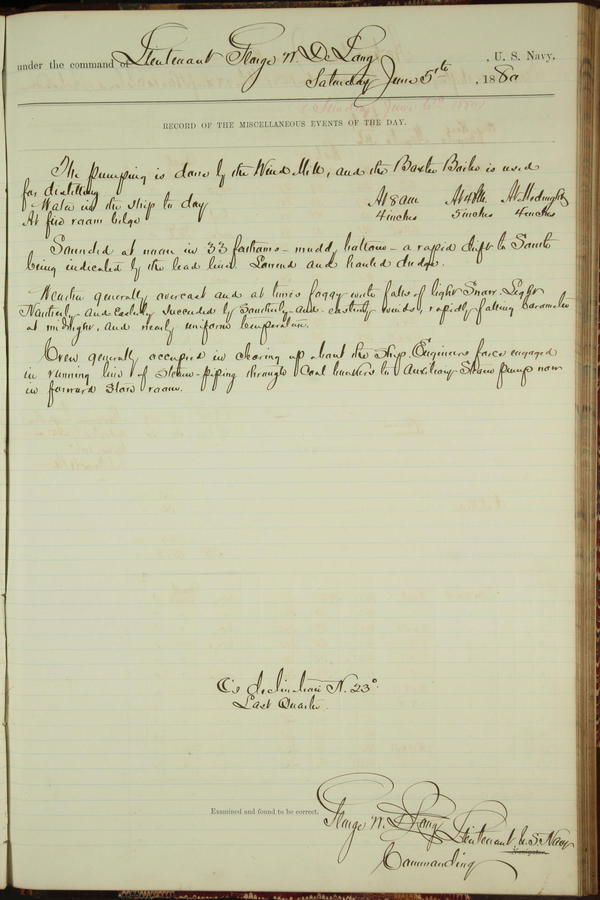 under the command of Lieutenant George W. De Long, U. S. Navy,
Saturday June 5th, 1880
RECORD OF THE MISCELLANEOUS EVENTS OF THE DAY.
The pumping is done by the Wind Mill, and the Baxter Boiler is used
for distilling
Water in the ship to day At 8 am At 4 PM. At Midnight
At fire room bilge 4 inches 5 inches 4 inches
Sounded at noon in 33 fathoms - mudd, bottom - a rapid drift to South
being indicated by the lead line. Lowered and hauled dredge.
Weather generally overcast and at times foggy with falls of light snow. Light
Northerly and Easterly succeeded by Southerly and easterly winds, rapidly falling barometer
at midnight, and nearly uniform temperature.
Crew generally occupied in clearing up about the ship. Engineers force engaged
in running line of steam-piping through Coal bunkers to Auxiliary Steam pump now
in forward store room.
C's declination N. 23°.
Last Quarter.
Examined and found to be correct.
George W. De Long Lieutenant U.S. Navy
Navigator.
Commanding